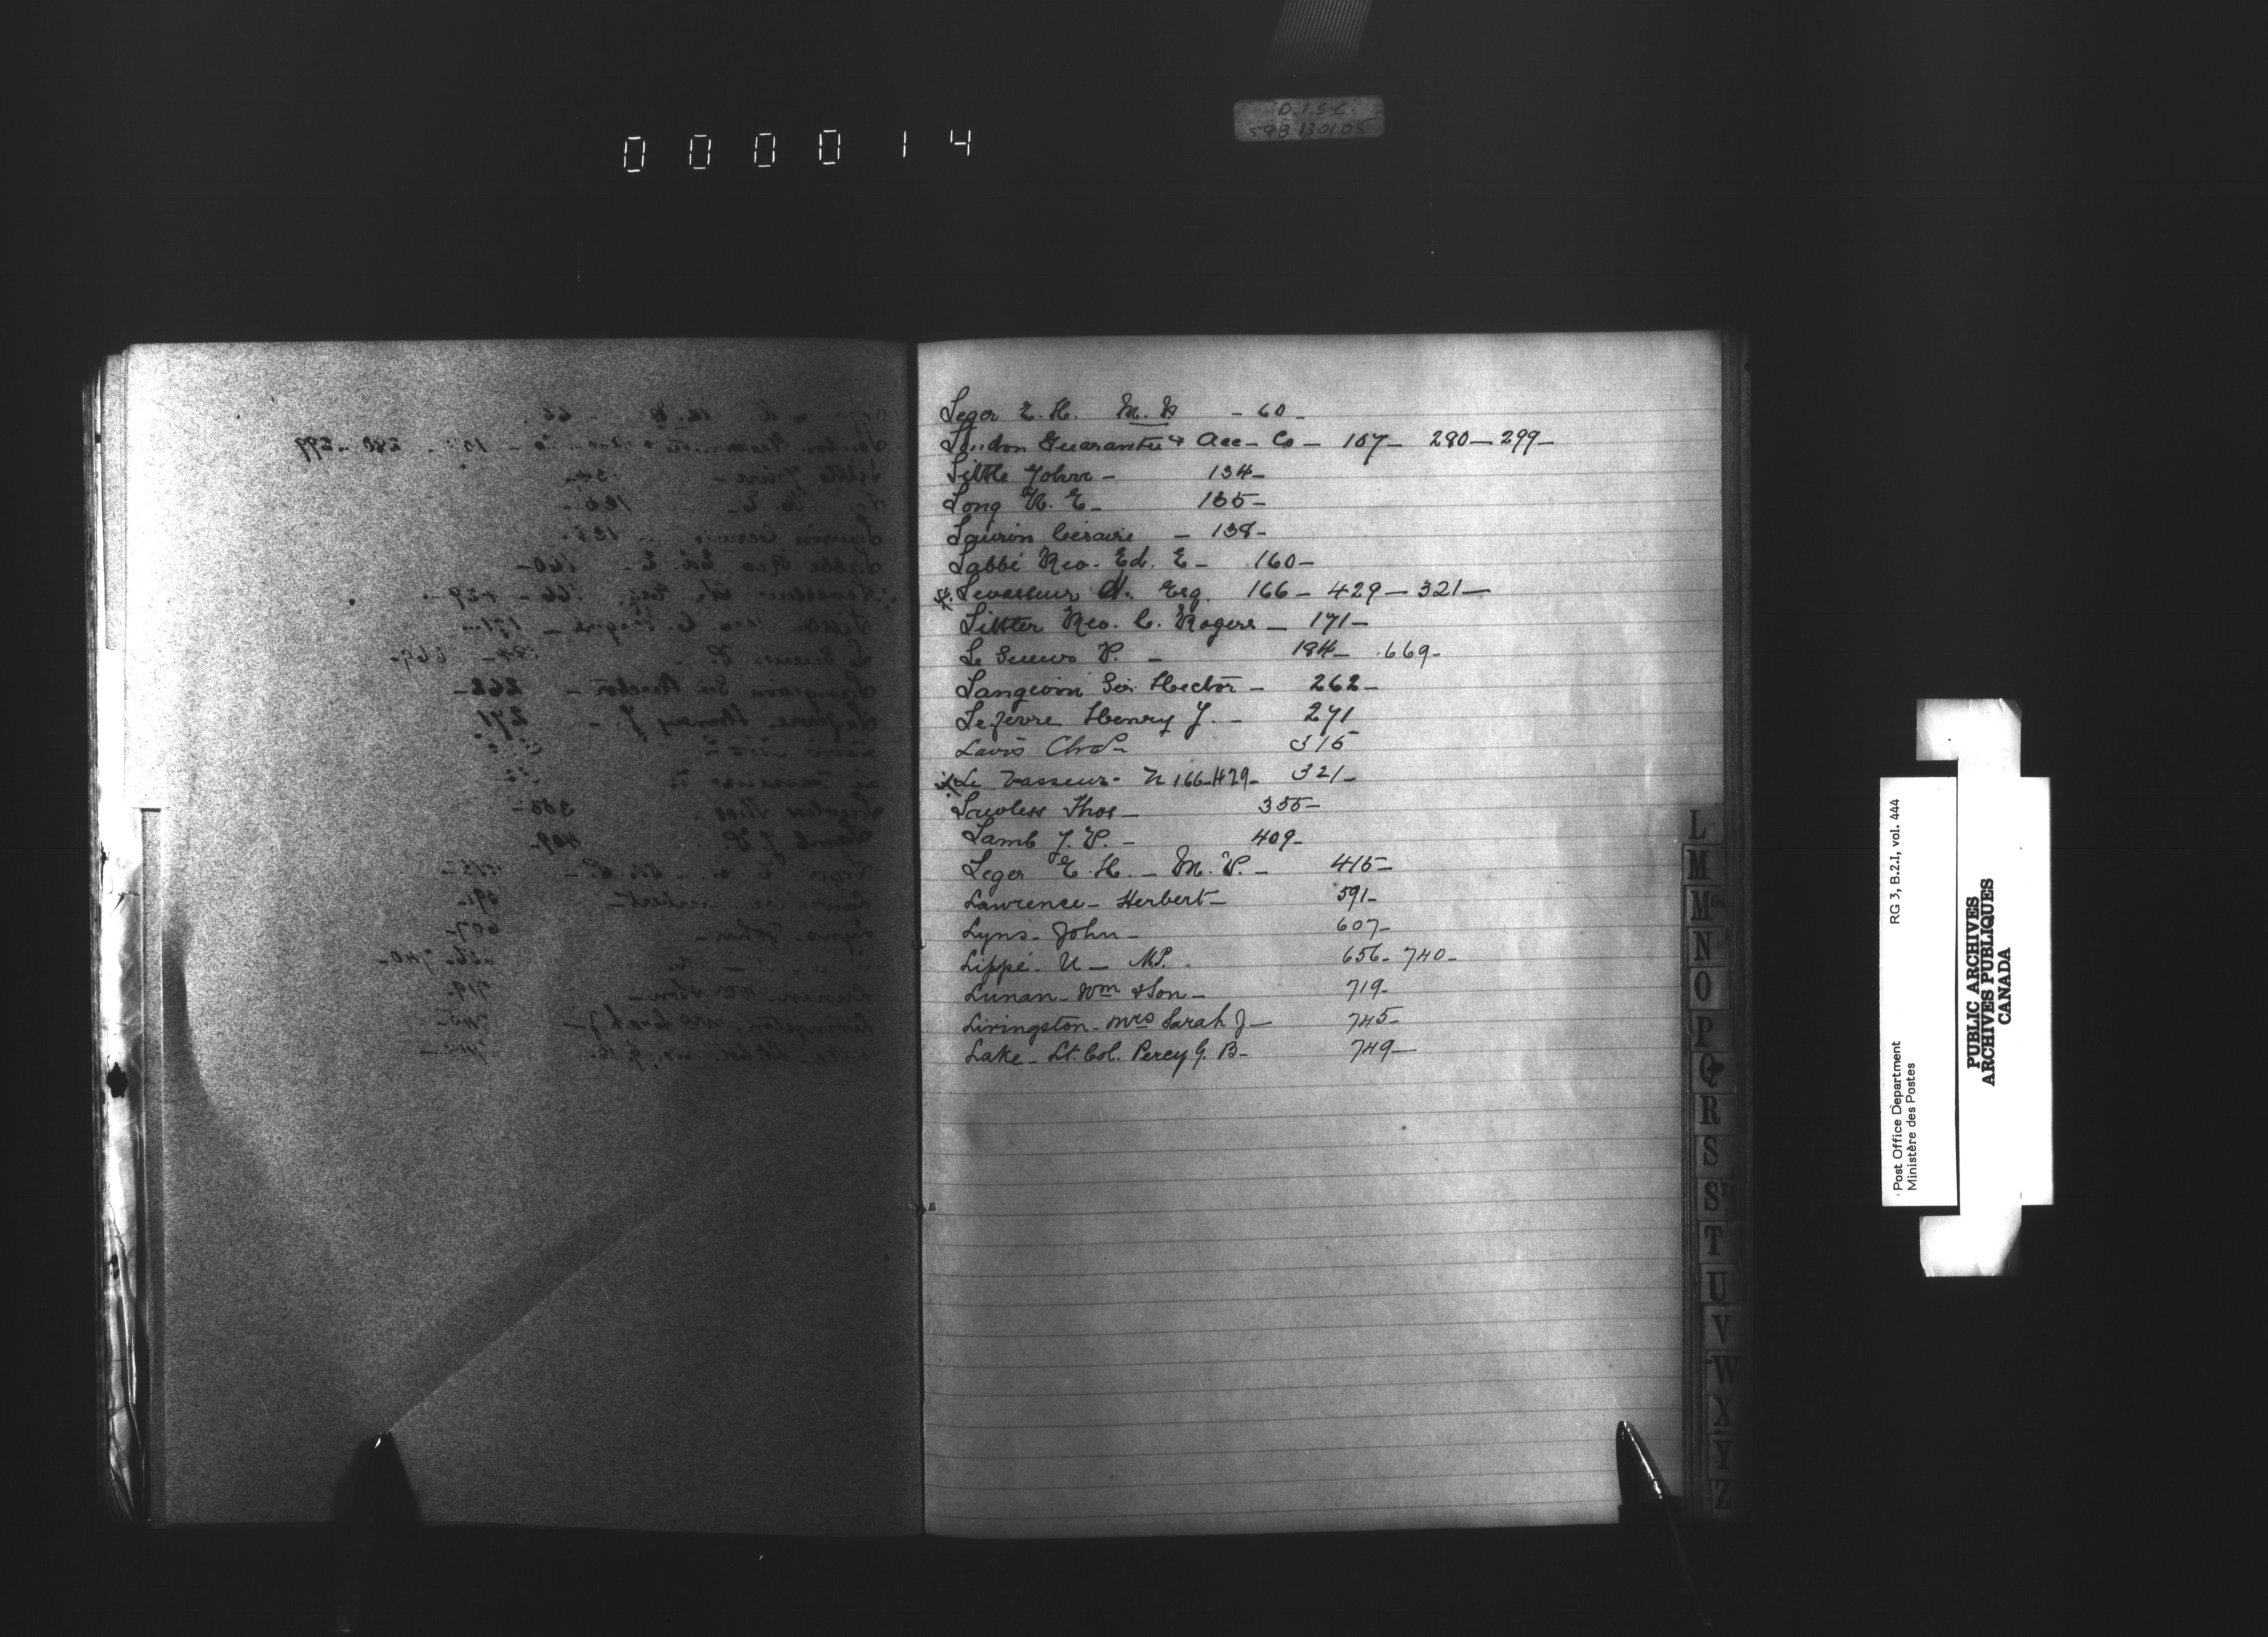 000014
D.I.S.C.
598 130105
Leger E. H. M. P. - 60 -
London Guarantee & Acc - Co - 107 - 280 - 299 -
Little John - 134 -
Long W. E - 135 -
Laurin Césaire - 138 -
Labbé Rev. Ed. E - 160 -
Levasseur N. Esq. 166 - 429 - 321 -
Littler Rev. C. Rogers - 171 -
Le Sueur P. - 184 - 669 -
Langevin Sir Hector - 262 -
Lefevre Henry J. - 271
Chas - 315
Le Vasseur - N 166 - 429 - 321 -
Lawless Thos - 355 -
Lamb J. P. - 409 -
Leger E. H. - M. P. - 415 -
Lawrence - Herbert - 591 -
Lyns - John - 607 -
Lippé - U - M.P. 656 - 740 -
Lunan - Wm & Son - 719 -
Livingston - Mrs Sarah J - 745 -
Lake - Lt. Col. Percy G. B - 749 -
L
M
Mc
N
O
P
Q
R
S
St
T
U
V
W
X
Y
Z
Post Office Department RG 3, B.2.I, vol. 444
Ministère des Postes
PUBLIC ARCHIVES
ARCHIVES PUBLIQUES
CANADA